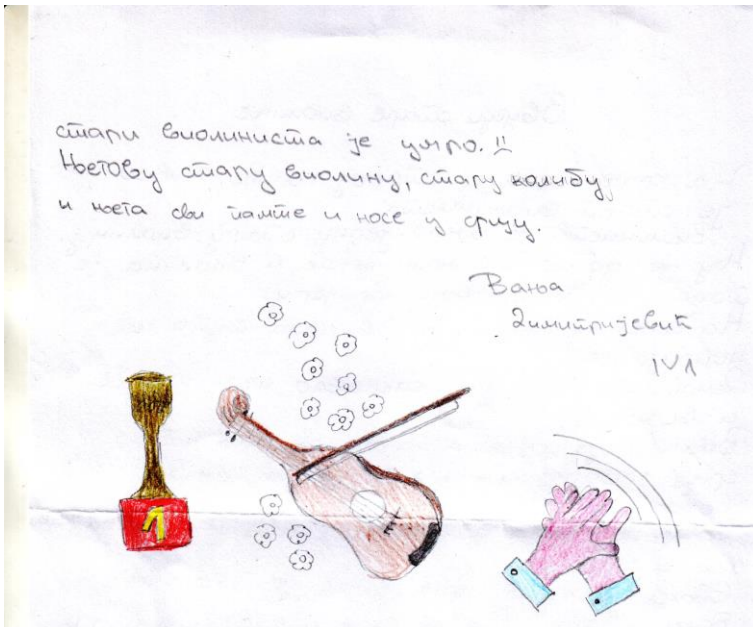 стари виолиниста је умро.!!
Његову стару виолину, стару колибу
и њега сви памте и носе у срцу.
Вања
Димитријевић
IV1
1